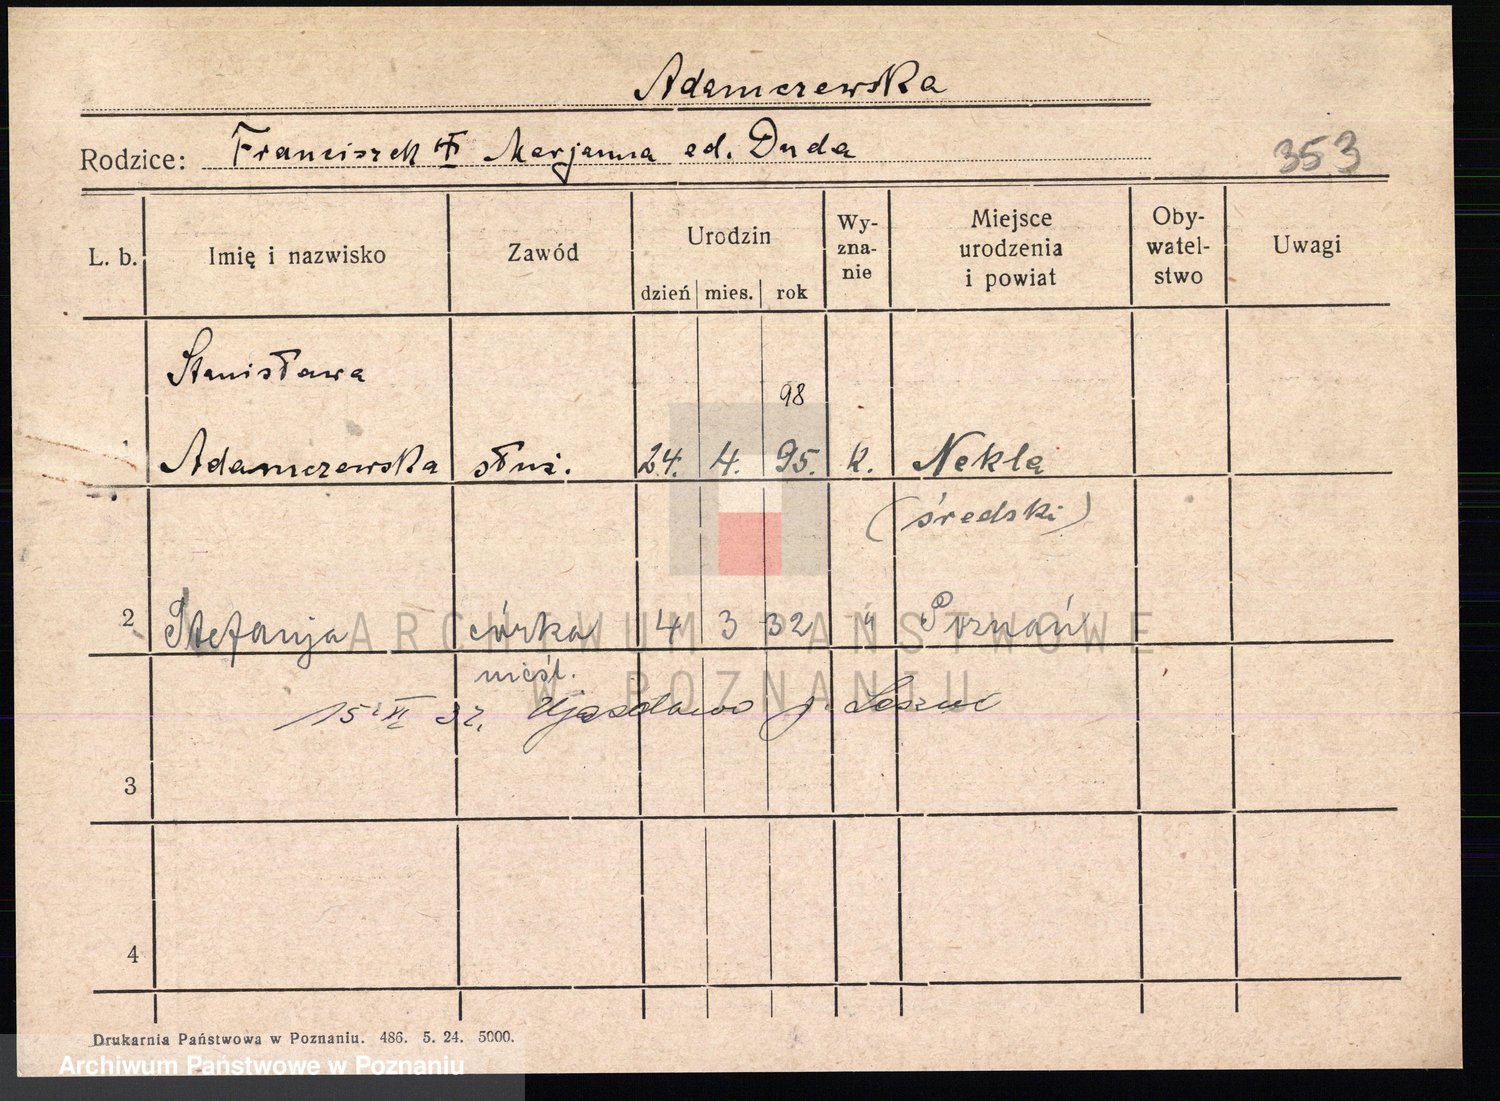 Adamczewska
Rodzice: Franciszek Marjanna ed. Duda
353
L. b. Imię i nazwisko Zawód Urodzin dzień mies. rok Wy-zna-nie Miejsce urodzenia i powiat Oby-watel-stwo Uwagi
Stanisława
98
Adamczewska służ. 24. 4. 95. k. Nekla
(średski)
2 Stefanja córka 4 3 32 " Poznań
nieśl.
15 XI 32. Ujazdowo p.
3
4
Drukarnia Państwowa w Poznaniu. 486. 5. 24. 5000.
ARCHIWUM PAŃSTWOWE
W POZNANIU
Archiwum Państwowe w Poznaniu